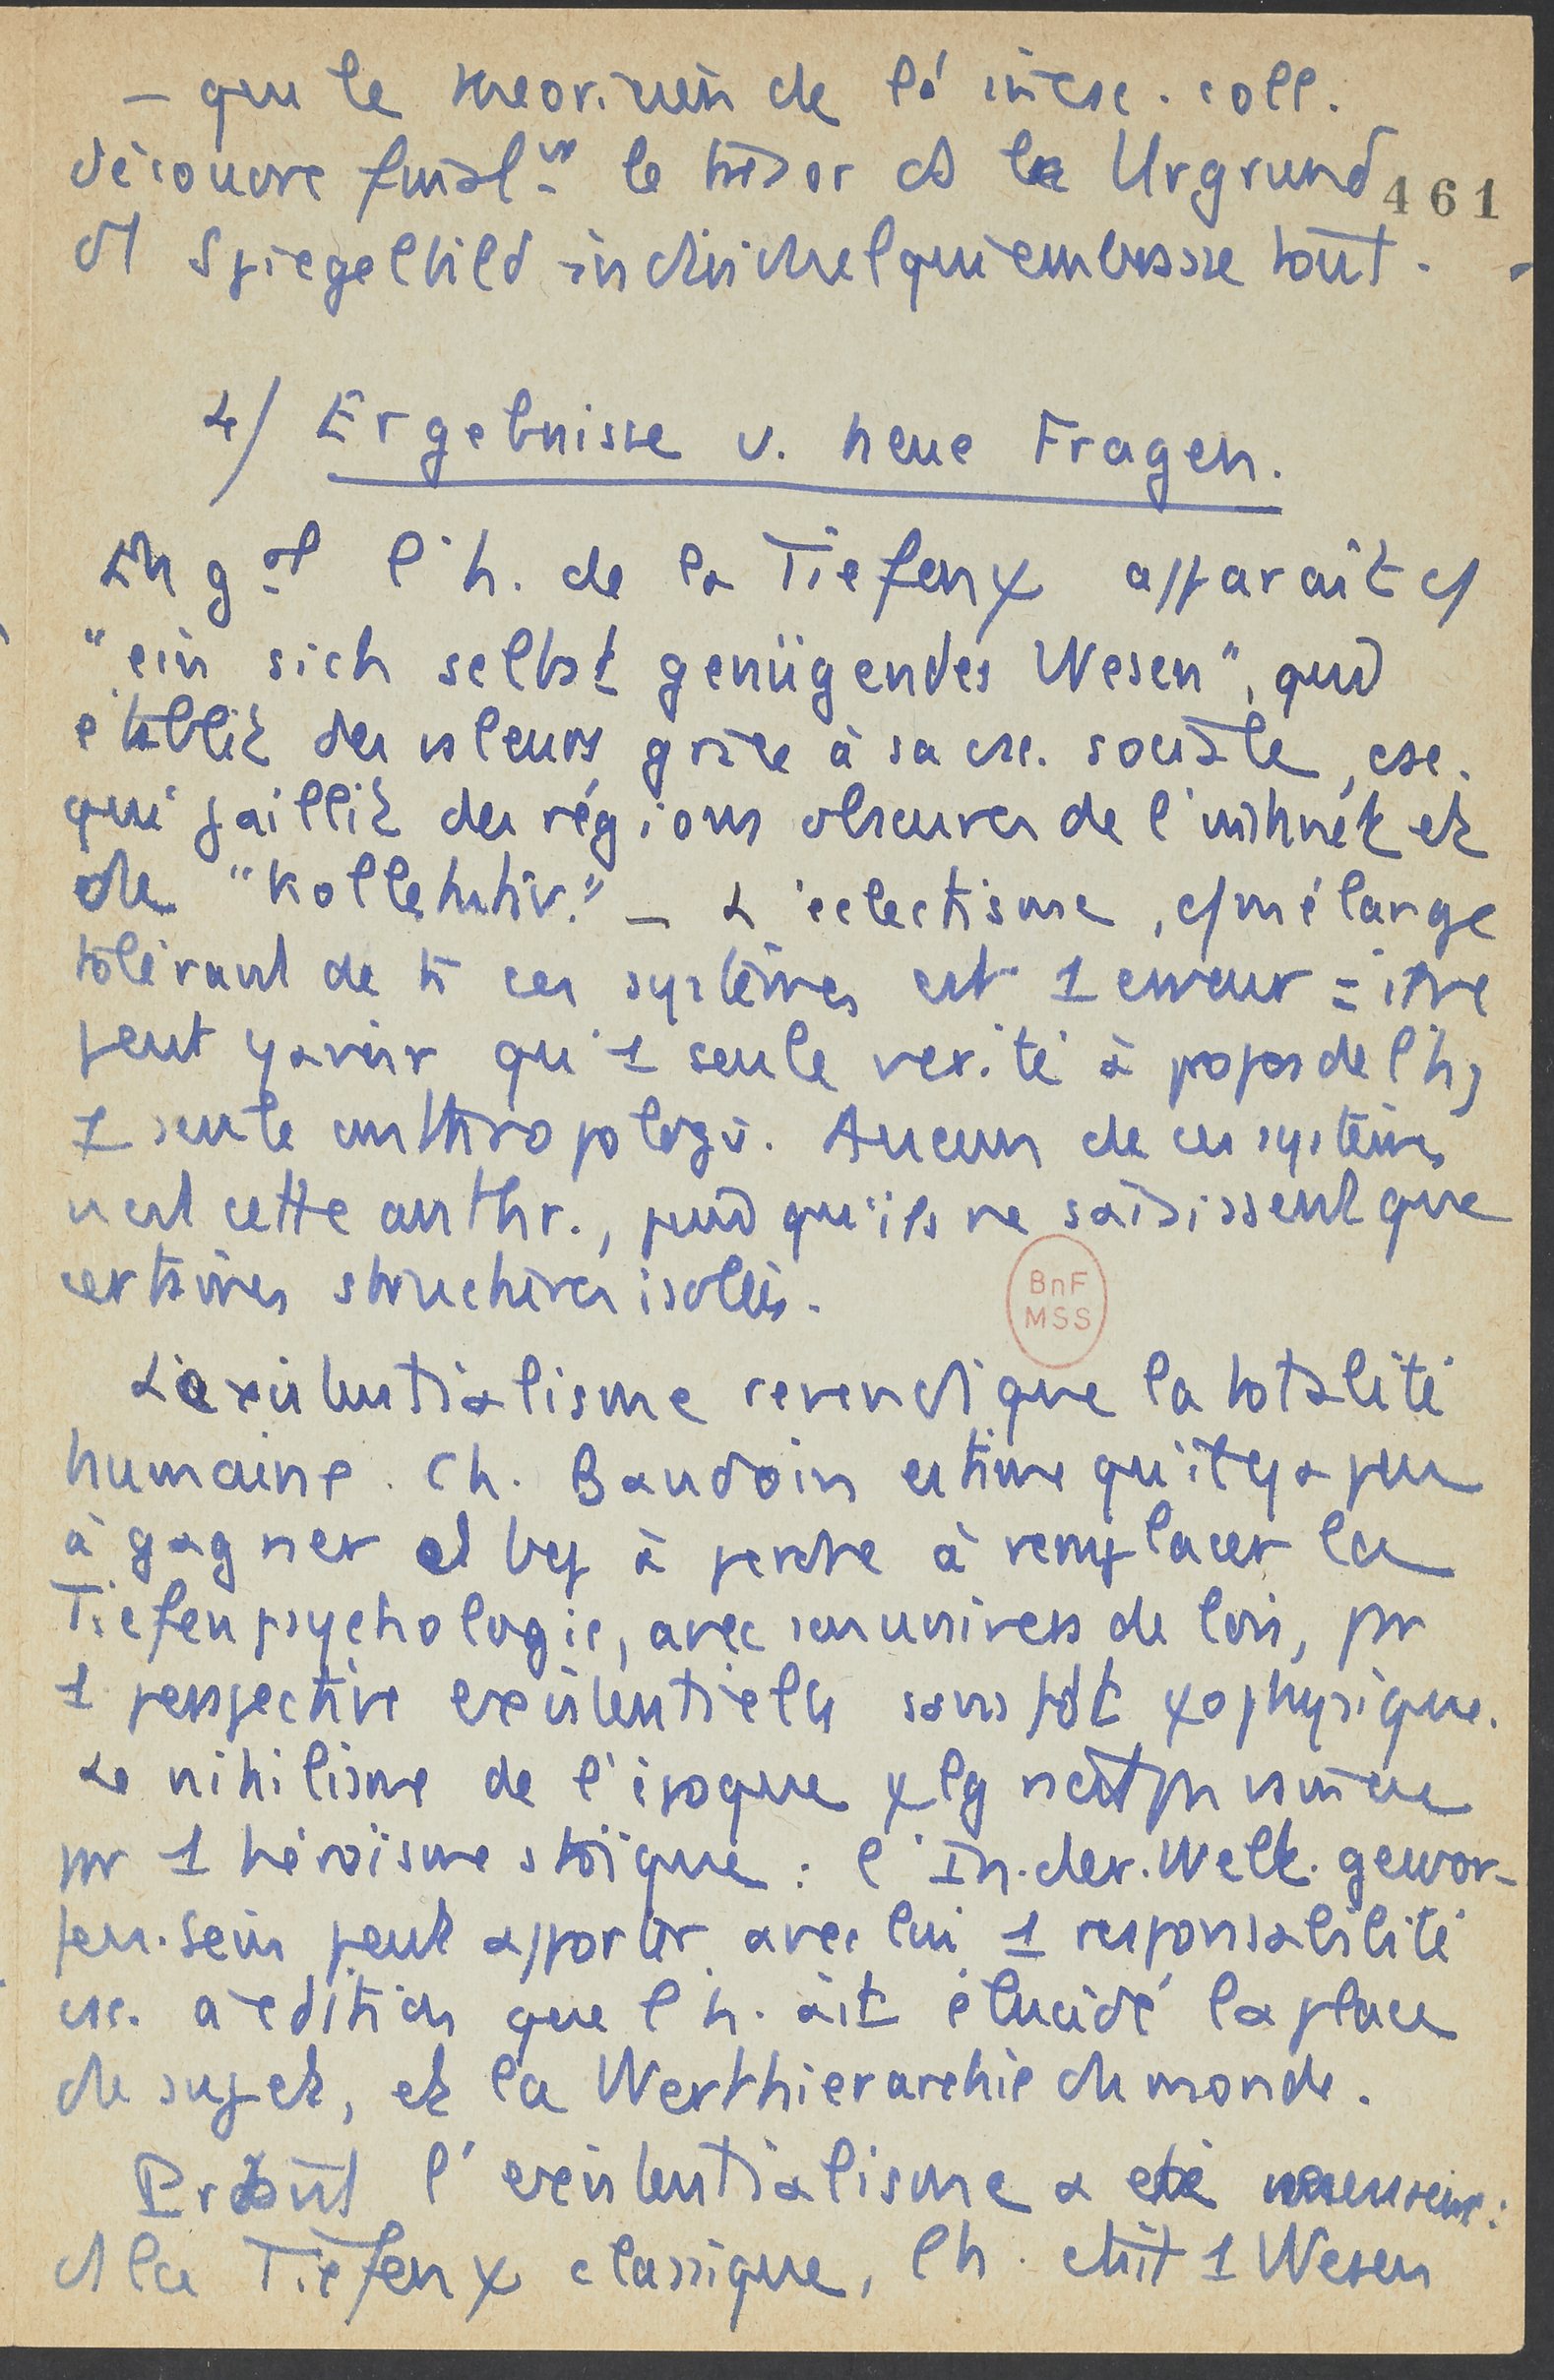 – que le théoricien de l' incsc. coll.
découvre finalᵗ le trésor ds le Urgrund
461
et Spiegelbild individuel qui embrasse tout.
4/ Ergebnisse u. neue Fragen.
En gal l'h. de la Tiefenψ apparaît c/
"ein sich selbst genügendes Wesen", qud
établit des valeurs grâce à sa csc. sociale, csc.
qui jaillit des régions obscures de l'instinct et
du "Kollektiv." – L'éclectisme, c/ mélange
tolérant de ts ces systèmes est 1 erreur = il ne
peut y avoir qu'1 seule vérité à propos de l'h,
1 seule anthropologie. Aucun de ces systèmes
n'est cette anthr., pcq qu'ils ne saisissent que
certaines structures isolées.
BnF
MSS
L'existentialisme revendique la totalité
humaine. Ch. Baudoin estime qu'il y a peu
à gagner et bcp à perdre à remplacer la
Tiefenpsychologie, avec son univers de lois, pr
1 perspective existentielle sans pdt ψophysique.
Le nihilisme de l'époque ψlg n'est pas vaincu
pr 1 héroïsme stoïque : l'In-der-Welt-gewor-
fen-sein peut apporter avec lui 1 responsabilité
csc. à cdition que l'h. ait élucidé la place
du sujet, et la Werthierarchie du monde.
Prtant l'existentialisme a été nécessaire :
ds la Tiefenψ classique, l'h. était 1 Wesen